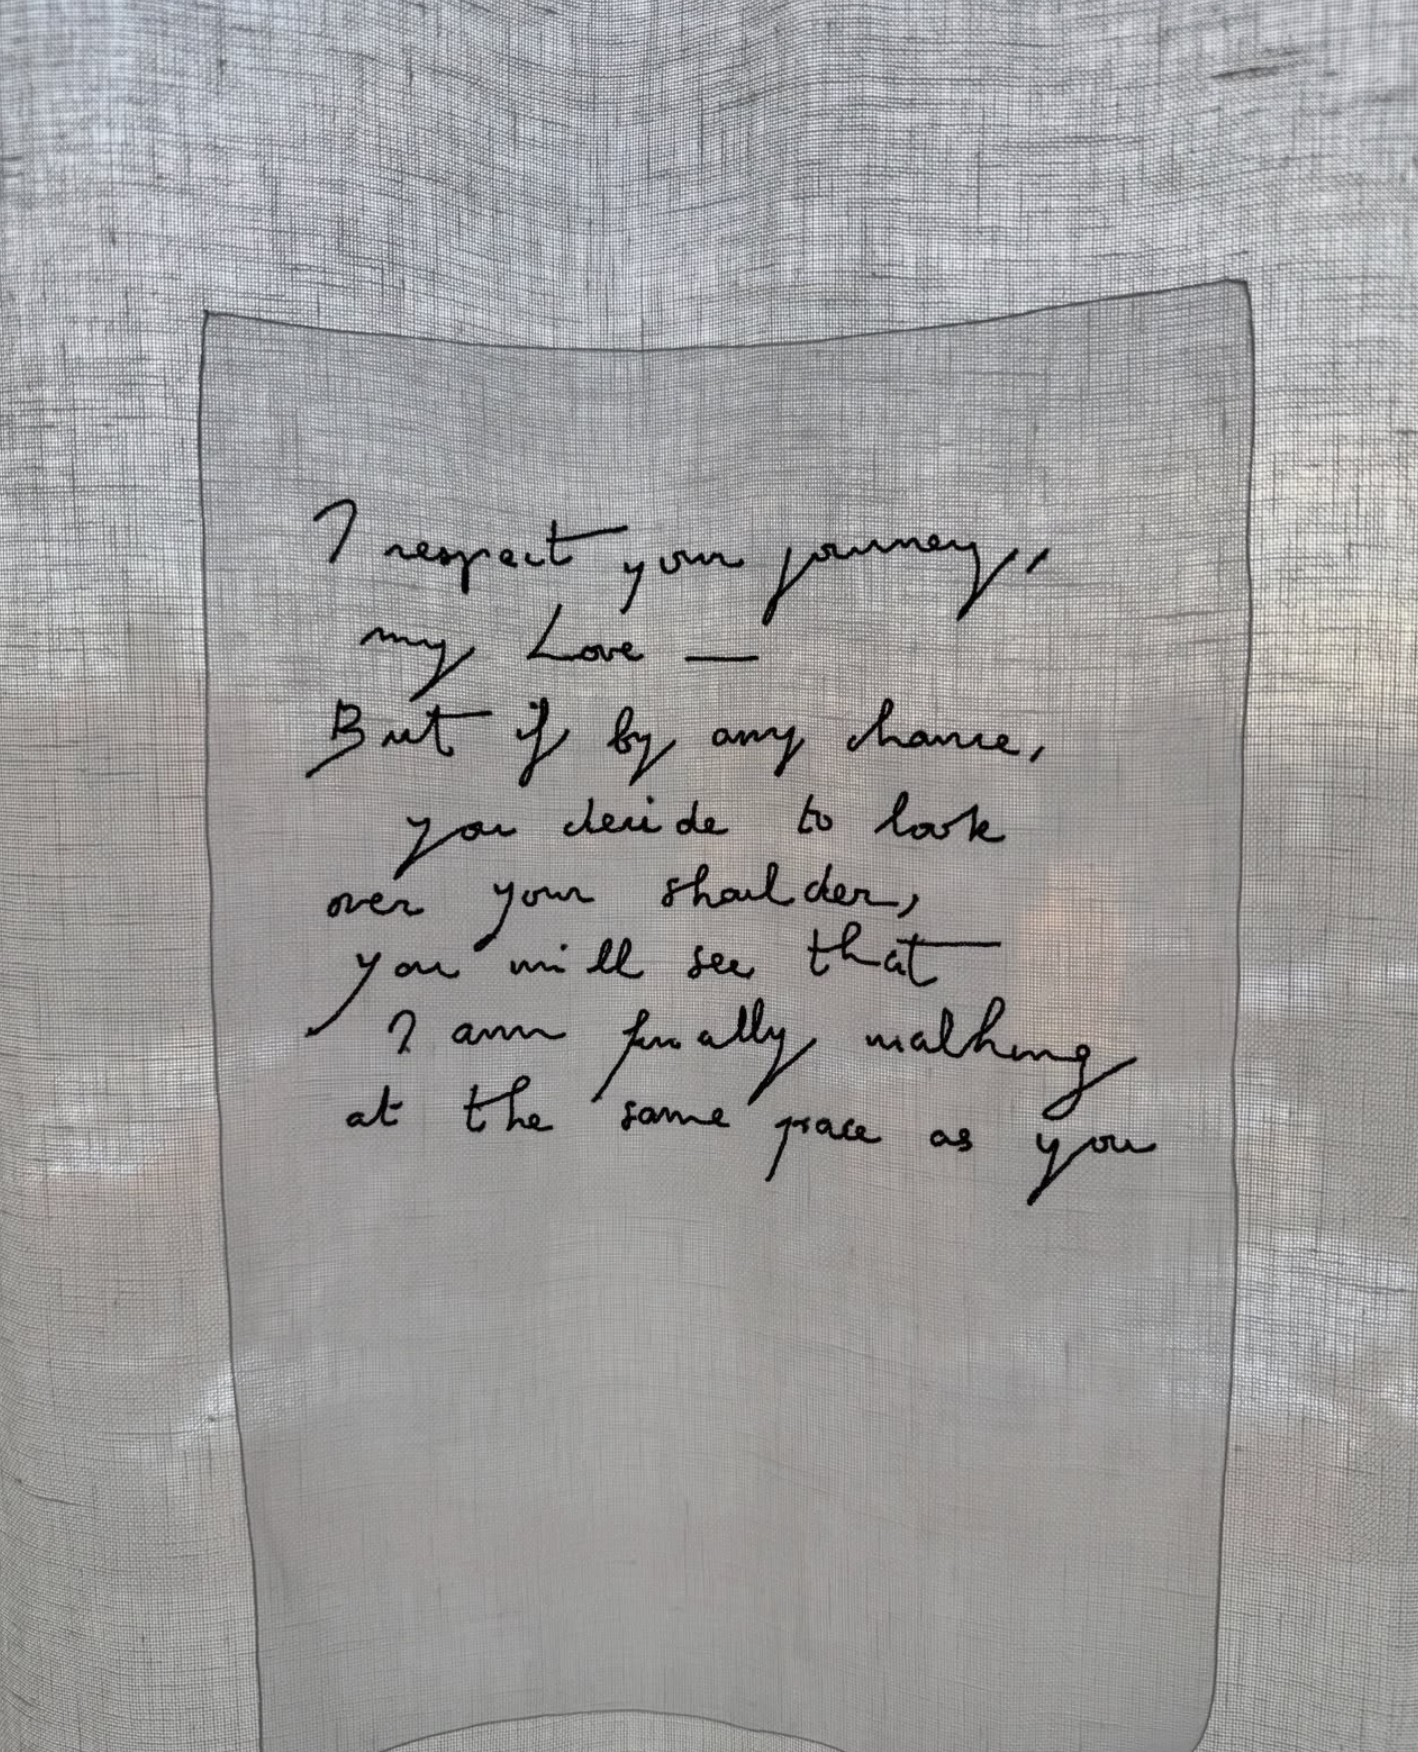 I respect your journey,
my Love —
But if by any chance,
you decide to look
over your shoulder,
you will see that
I am finally walking
at the same pace as you